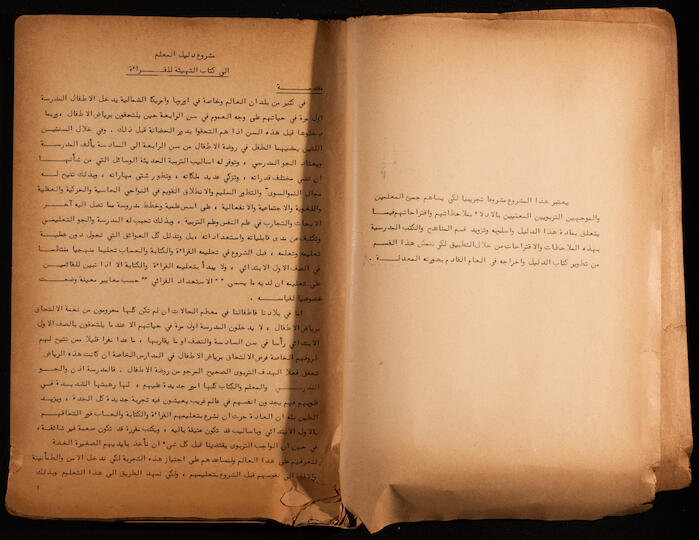 يعتبر هذا المشروع مشروعا تجريبيا لكي يساهم جميع المعلمين
والموجهين التربويين المعنيين بالادلاء بملاحظاتهم واقتراحاتهم فيما
يتعلق بمادة هذا الدليل واسلوبه وتزويد قسم المناهج والكتب المدرسية
بهذه الملاحظات والاقتراحات من خلال التطبيق لكي يتمكن هذا القسم
من تطوير كتاب الدليل واخراجه في العام القادم بصورته المعدلة .
مشروع دليل المعلم
الى كتاب التهيئة للقراءة
مقدمة
في كثير من بلدان العالم وخاصة في اوروبا وامريكا الشمالية يدخل الاطفال المدرسة
اول مرة في حياتهم على وجه العموم في سن الرابعة حين يلتحقون برياض الاطفال ، وربما
دخلوها قبل هذه السن اذا هم التحقوا بدور الحضانة قبل ذلك . وفي خلال السنتين
اللتين يمضيهما الطفل في روضة الاطفال من سن الرابعة الى السادسة يألف المدرسة
ويعتاد الجو المدرسي ، وتتوفر له اساليب التربية الحديثة الوسائل التي من شأنها
ان تنمي مختلف قدراته ، وتزكي عديد ملكاته ، وتطور شتى مهاراته ، وبذلك تتيح له
مجال النمو السوي والتطور السليم والانطلاق القويم في النواحي الحاسية والحركية والعقلية
واللغوية والاجتماعية والانفعالية ، على اسس علمية وخطط مدروسة مما تصل اليه آخر
الابحاث والتجارب في علم النفس وعلم التربية ، وبذلك تحبب له المدرسة والجو التعليمي
وتكشف عن مدى قابلياته واستعداداته ، بل وتذلل كل العوائق التي تحول دون عملية
تعليمه وتعلمه ، قبل الشروع في تعليمه القراءة والكتابة والحساب تعليما منهجيا منتظما
في الصف الاول الابتدائي ، ولا يبدأ بتعليمه القراءة والكتابة الا اذا تبين للقائمين
على تعليمه ان لديه ما يسمى " الاستعداد القرائي " حسب معايير معينة وضعت
خصوصا لقياسه .
اما في بلادنا فاطفالنا في معظم الحالات ان لم تكن كلها محرومون من نعمة الالتحاق
برياض الاطفال ، لا يدخلون المدرسة اول مرة في حياتهم الا عندما يلتحقون بالصف الاول
الابتدائي رأسا في سن السادسة والنصف او ما يقاربها ، ما عدا نفرا قليلا ممن تتيح لهم
ظروفهم الخاصة فرص الالتحاق برياض الاطفال في المدارس الخاصة ان كانت هذه الرياض
تحقق فعلا الهدف التربوي الصحيح المرجو من روضة الاطفال . فالمدرسة اذن والجو
المدرسي والمعلم والكتاب كلها امور جديدة عليهم ، لها رهبتها الشديدة في
قلوبهم فهم يجدون انفسهم في عالم غريب يعيشون فيه تجربة جديدة كل الجدة ، ويزيد
الطين بلة ان العادة جرت ان نشرع بتعليمهم القراءة والكتابة والحساب فور التحاقهم
بالاول الابتدائي وباساليب قد تكون عتيقة بالية ، وبكتب مقررة قد تكون صعبة غير شائقة ،
في حين ان الواجب التربوي يقتضينا قبل كل شيء ان نأخذ بايديهم الصغيرة الغضة
لنعرفهم على هذا العالم ولنساعدهم على اجتياز هذه التجربة لكي ندخل الامن والطمأنينة
الى نفوسهم قبل الشروع بتعليمهم ، ولكي نمهد الطريق الى هذا التعليم وبذلك